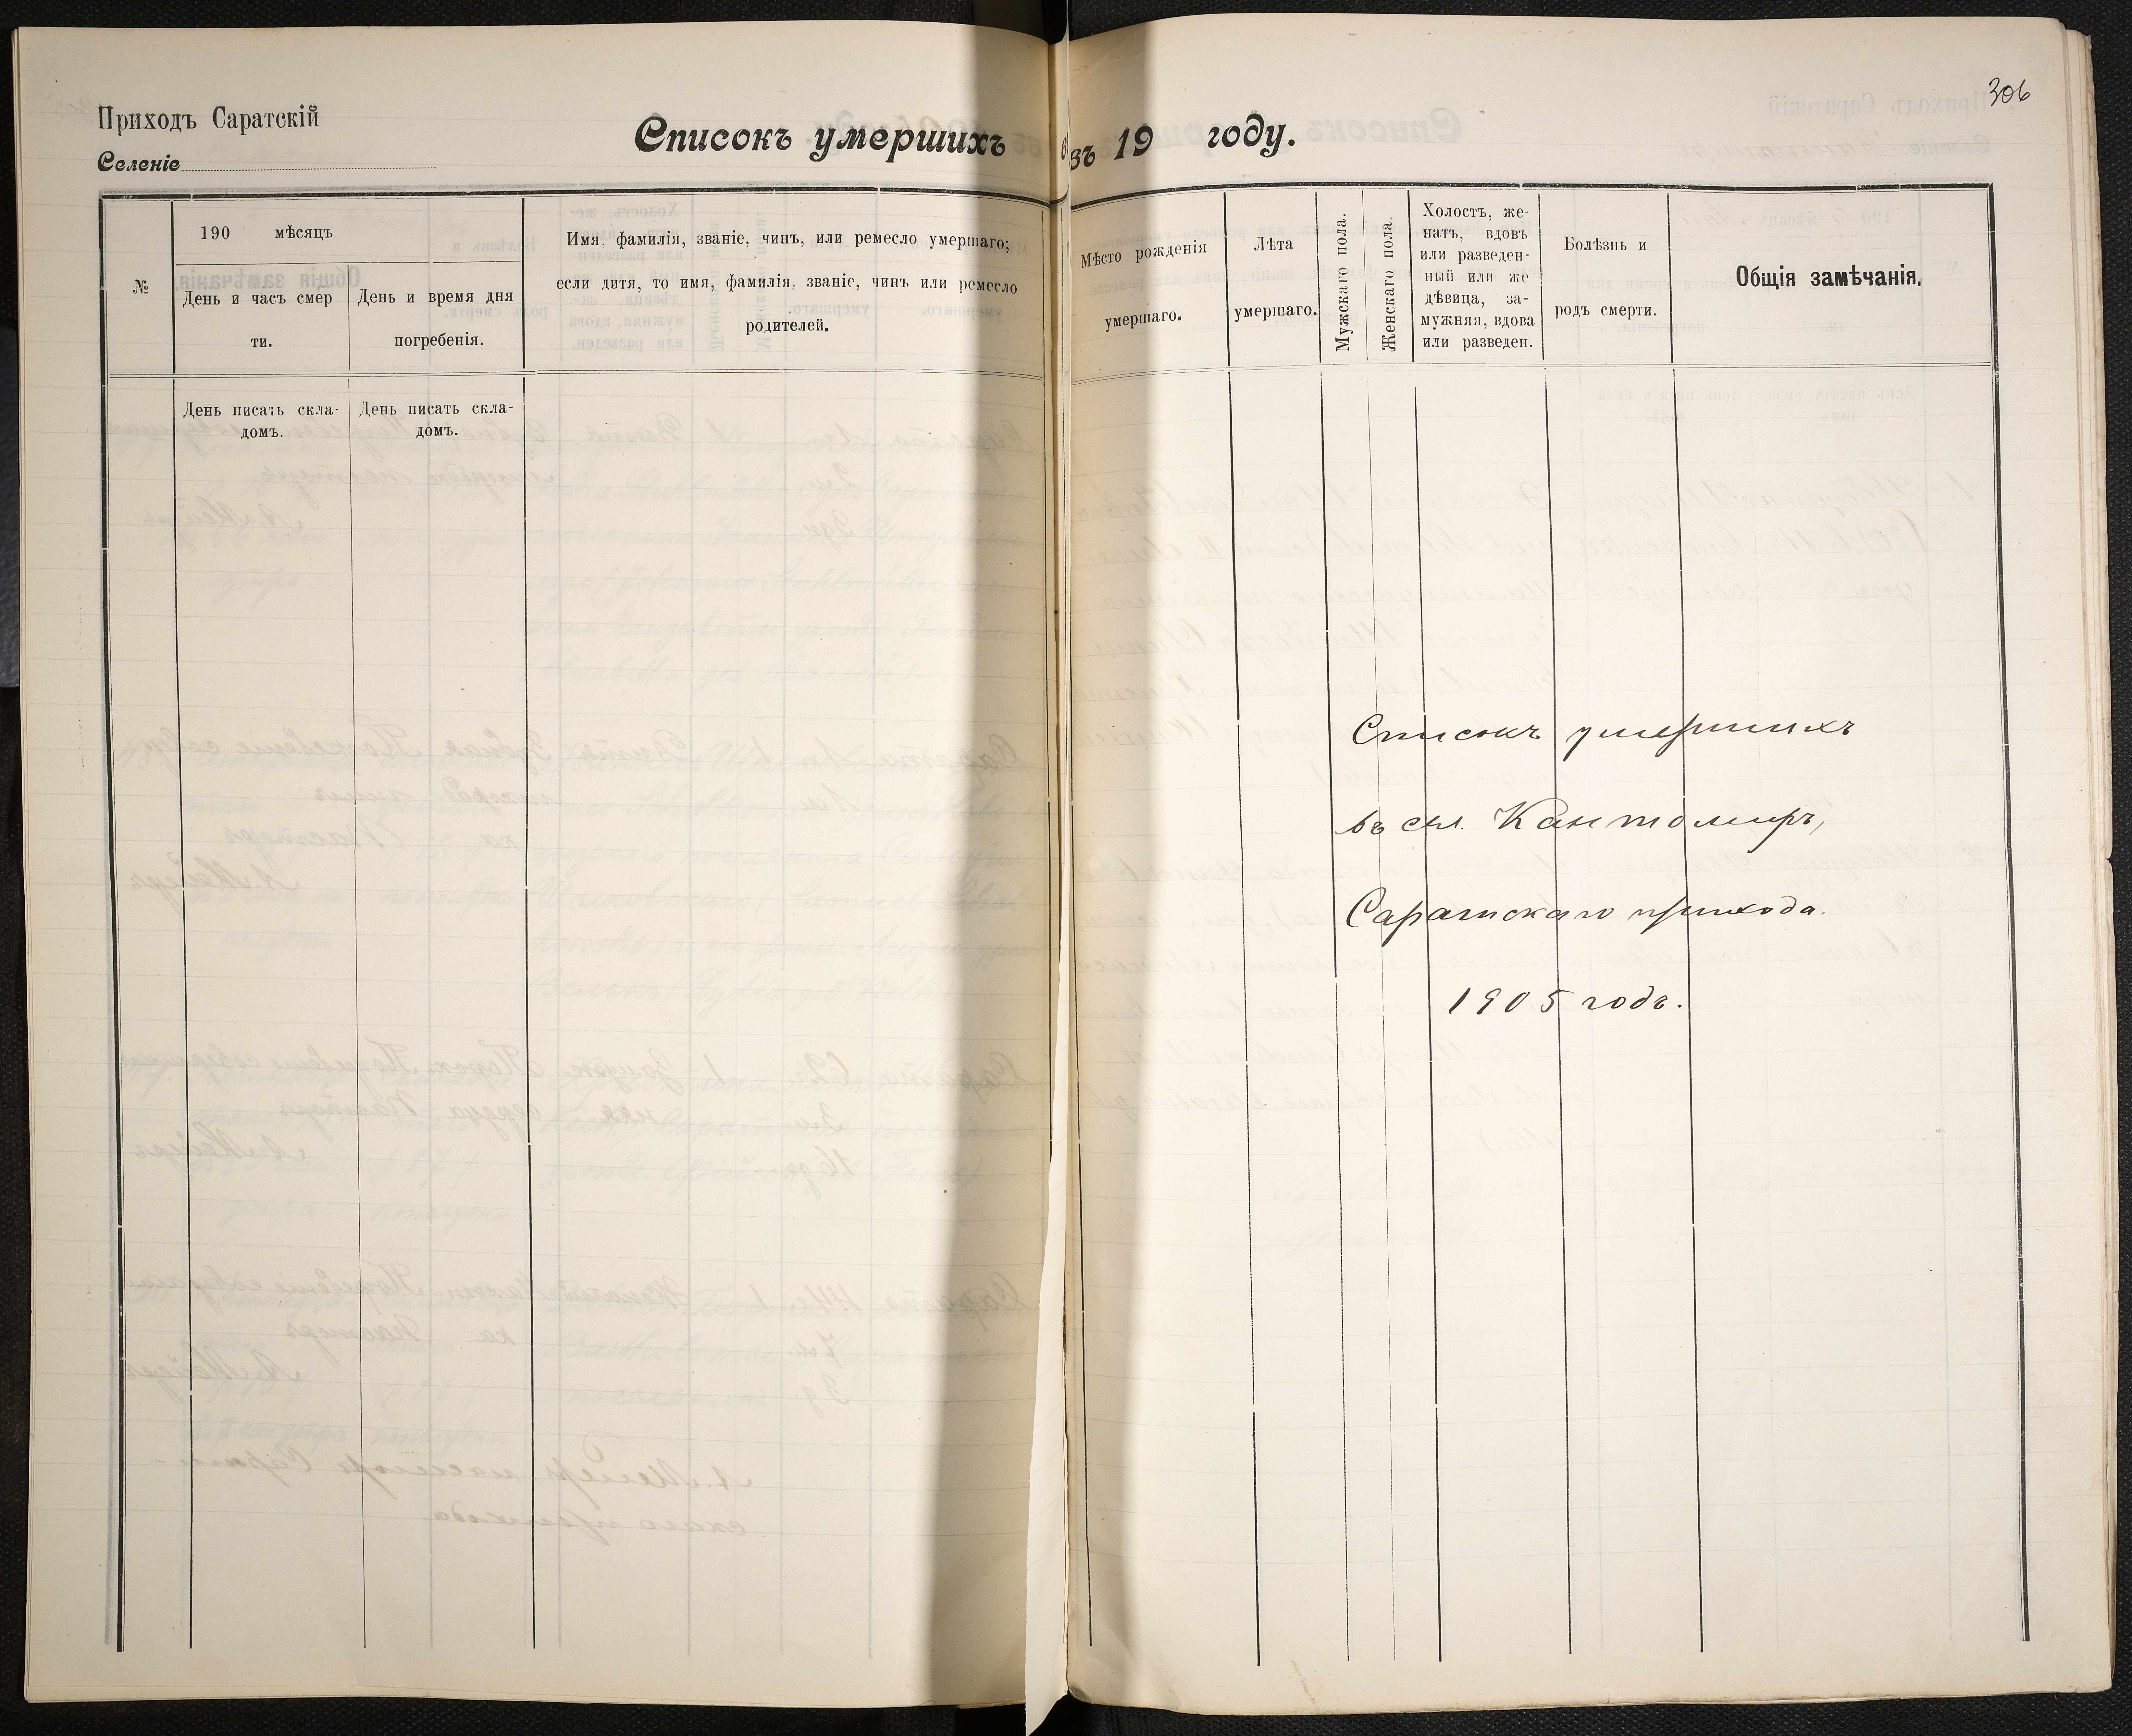 306
Приходъ Саратскій
Селеніе
Списокъ умершихъ въ 19 году.
№
190 мѣсяцъ
День и часъ смер
ти.
День и время дня
погребенія.
Имя, фамилія, званіе, чинъ, или ремесло умершаго;
если дитя, то имя, фамилія, званіе, чинъ или ремесло
родителей.
Мѣсто рожденія
умершаго.
Лѣта
умершаго.
Мужскаго пола.
Женскаго пола.
Холостъ, же-
натъ, вдовъ
или разведен-
ный или же
дѣвица, за-
мужняя, вдова
или разведен.
Болѣзнь и
родъ смерти.
Общія замѣчанія.
День писать скла-
домъ.
День писать скла-
домъ.
Списокъ умершихъ
въ сел. Кантемиръ,
Саратскаго прихода.
1905 годъ.